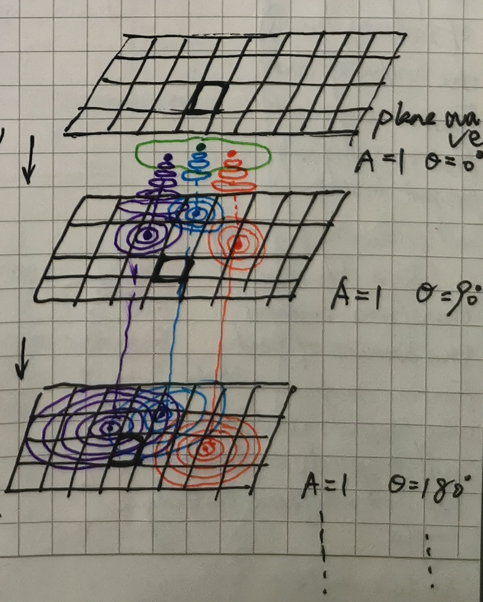 plane wa
ve
A=1 θ=0°
A=1 θ=90°
A=1 θ=180°